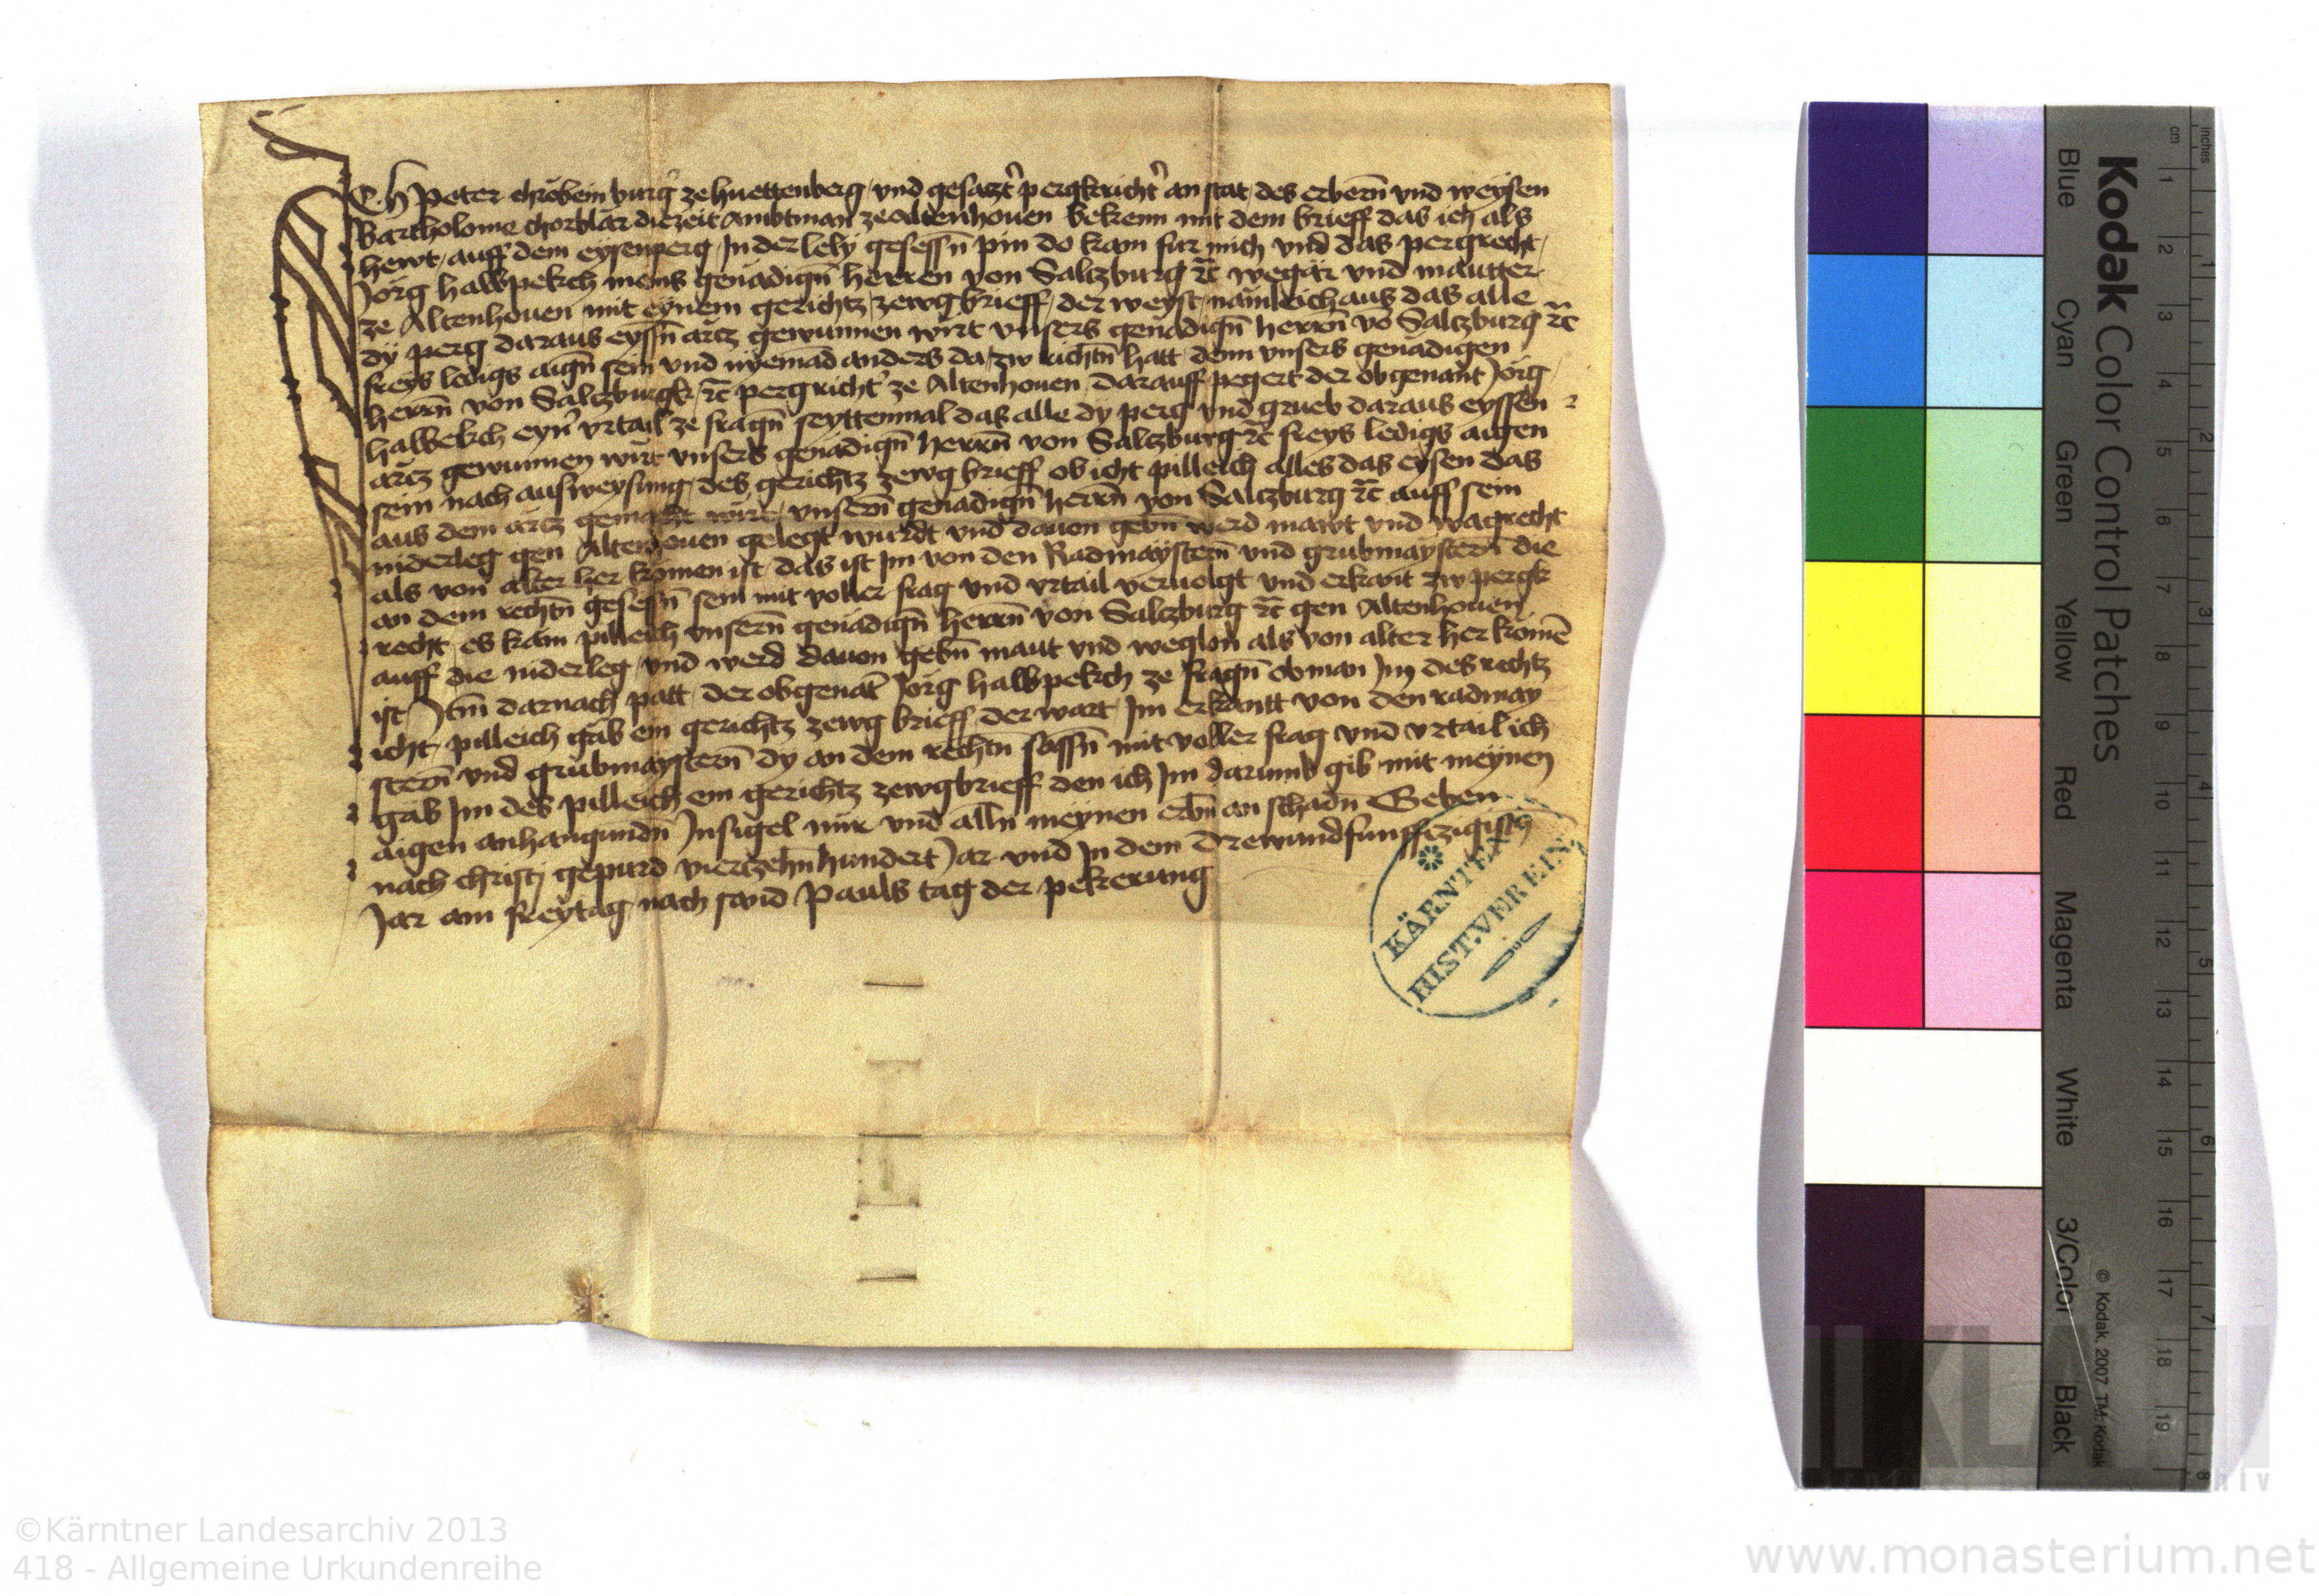 Ich Peter chrobein burg' ze huettenberg / vnd gesatzt' pergkricht' an stat / des erbern̄ vnd weysen
Bartholome chorblar die zeit Ambtman ze Altenhouen bekenn mit dem brieff das ich als
hewt / auff dem eysenperg / In der lely gesessn̄ pin do kam fur mich vnd das pergrecht /
Jorg halbpekch meins genadign̄ herren von Saltzburg ꝛc̄ wegar vnd mautter
ze Altenhouen mit eynem gerichtz / zewgbrieff / der weyst / nämleich aus das alle
dy perg daraus eyssn̄ artz gewunnen wirt vnsers genadign̄ herrn̄ vō Saltzburg ꝛc̄
freys ledigs aign̄ sein vnd nyemād anders da / zw richtn̄ hatt denn vnsers genadigen
herrn̄ von Saltzburgk / ꝛc̄ pergricht' ze Altenhouen / darauff pegert der obgenant Jorg
halbekch eyn' vrtail ze fragn̄ seyttenmal das alle dy perg vnd grueb daraus eyssen
artz gewunnen wirt vnsers genadign̄ herrn̄ von Saltzburg ꝛc̄ freys ledigs aigen
sein nach ausweysung / des gerichtz zewg brieff ob icht pilleich alles das eysen das
aus dem artz gemacht wirt / vnsern̄ genadign̄ herrn̄ von Saltzburg ꝛc̄ auff sein
niderleg gen Altenhouen gelegt wurdt vnd dauon gebn̄ werd mawt vnd wagrecht
als von alter her komen ist / das ist Im von den Radmaystern̄ vnd grubmaystern̄ die
an dem rechtn̄ gesessn̄ sein mit voller frag vnd vrtail veruolgt vnd erkant zw pergk
recht / es kam pilleich vnsern̄ genadign̄ herrn̄ von Saltzburg ꝛc̄ gen Altenhouen
auff die niderleg / vnd werd dauon gebn̄ maut vnd weglon als von alter her komē
ist / Itm̄ darnach patt / der obgenāt Jorg halbpekch ze fragn̄ ob man Im des rechtz
icht / pilleich gäb ein gerichtz zewg brieff / der wart Im erkantt von den radmay
stern̄ vnd grubmaystern̄ dy an dem rechtn̄ sassn̄ mit voller frag vnd vrtail ich
gäb Im des pilleich ein gerichtz zewgbrieff den ich Im darumb gib mit meynen
aigen anhangundn̄ Insigel mir vnd alln meynen erbn̄ an schadn̄ Geben
nach christi gepurd vierzehn̄hundert Jar vnd In dem drewundfunffzigistn̄
Jar am freytag nach sand Pauls tag der pekerung
KÄRNTEN
HIST.VEREIN
Kodak Color Control Patches
Blue Cyan Green Yellow Red Magenta White 3/Color Black
© Kodak, 2007 TM: Kodak
cm 1 2 3 4 5 6 7 8 9 10 11 12 13 14 15 16 17 18 19
inches 1 2 3 4 5 6 7 8
©Kärntner Landesarchiv 2013
418 - Allgemeine Urkundenreihe
www.monasterium.net